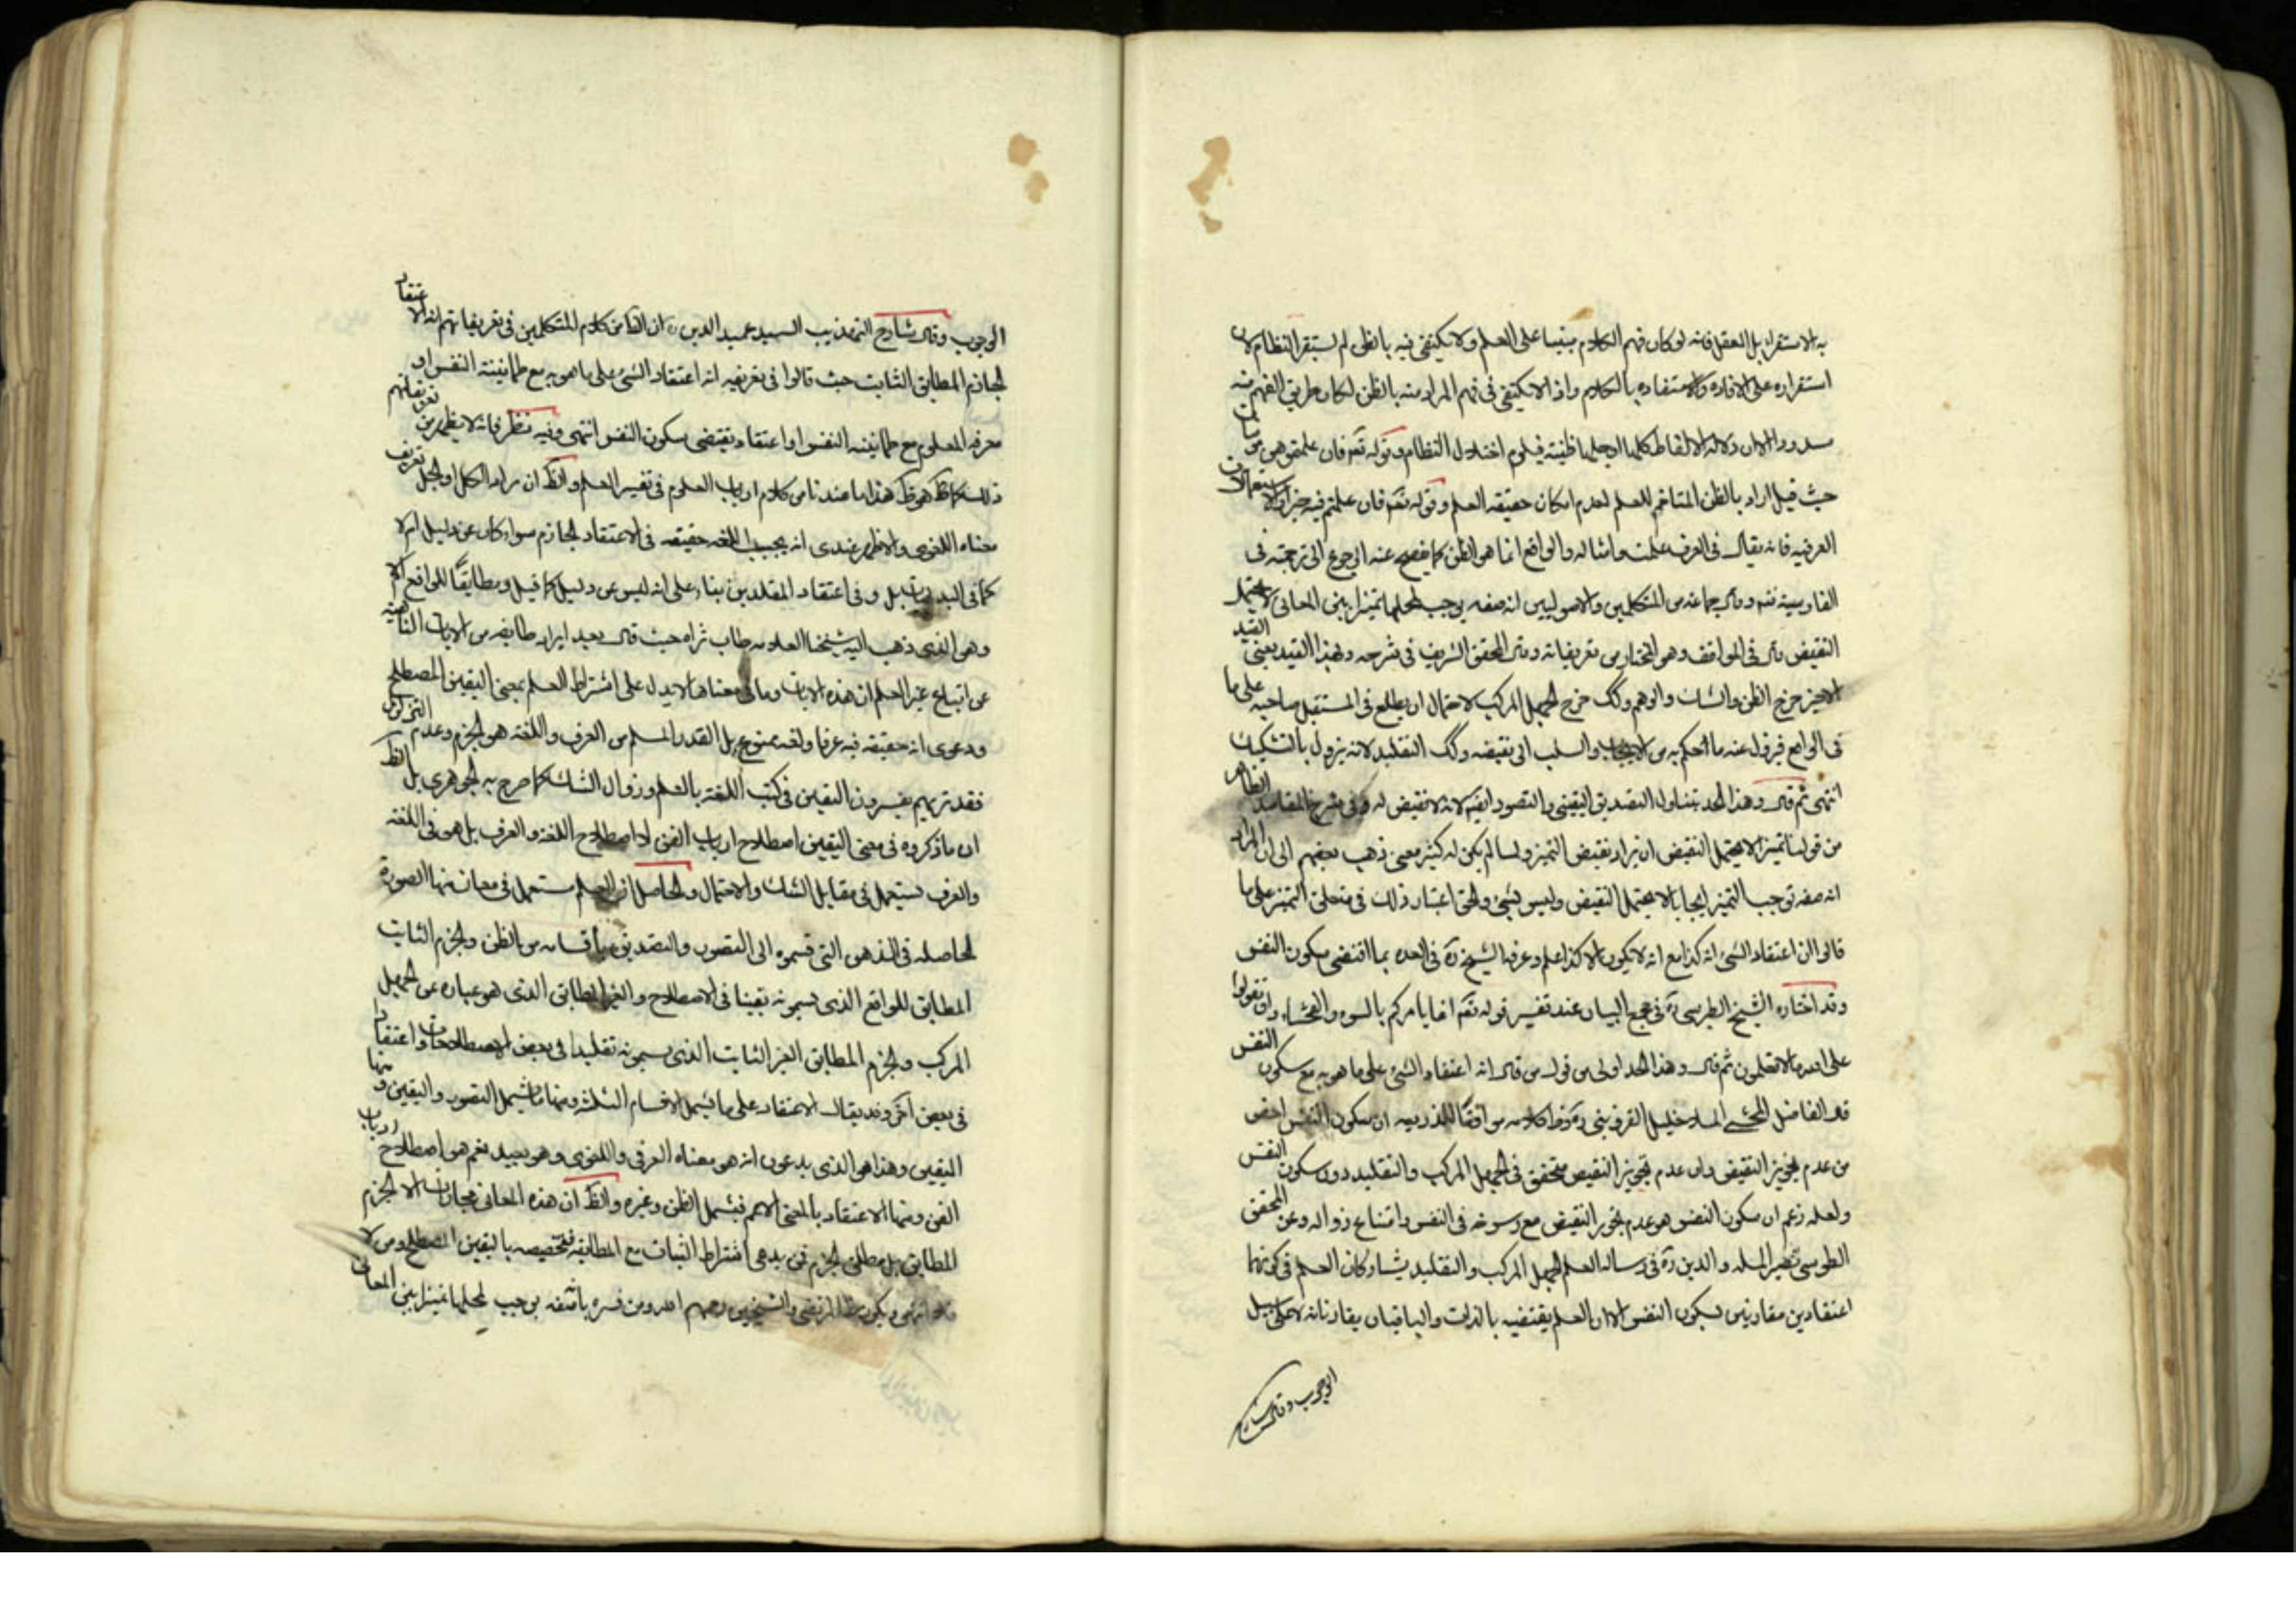 به الاستقراء بل العقل فانه لو كان فهم الكلام مبنيا على العلم ولا يكتفى فيه بالظن لم يستقر النظام لان
استقراره على الافاده والاستفاده بالكلام واذ الا يكتفى فى فهم المراد منه بالظن لكان طريق الفهم منه
دلاله الالفاظ كلها او جلها ظنية فيلزم اختلال النظام وقوله تعم فان علمتموهن مؤمنات
حيث قيل اراد بالظن المتاخم للعلم لعدم امكان حقيقه العلم وقوله تعم فان علمتم فيهم خيرا والاستعمالات
العرفيه فانه يقال فى العرف علمت وامثاله والواقع انما هو الظن كما يفصح عنه الرجوع الى ترجمته فى
الفارسية وقال جماعة من المتكلمين والاصوليين انه صفه يوجب لمحلها تميزا بين المعانى لا يحتمل
النقيض قال فى المواقف وهو المختار من تعريفاته وقال المحقق الشريف فى شرحه وبهذا القيد يعنى القيد
الاخير خرج الظن والشك والوهم وكك خرج الجهل المركب لاحتمال ان يطلع فى المستقبل صاحبه على ما
فى الواقع فيزول عنه ما احكم به من الايجاب والسلب الى نقيضه وكك التقليد لانه يزول بالتشكيك
انتهى ثم قال وهذا الحد يتناول التصديق اليقينى والتصور ايضا لانه لا نقيض له وفى شرح المقاصد الظاهر
من قولنا تميزا لا يحتمل النقيض ان يراد نقيض التميز ولما لم يكن له كثير معنى ذهب بعضهم الى ان المراد
انه صفه توجب التميز ايجابا لا يحتمل النقيض وليس بشئ والحق اعتبار ذلك فى متعلق التميز على ما
قالوا ان اعتقاد الشئ انه كذا مع انه لا يكون الا كذا علم وعرفه الشيخ ره فى العده بما اقتضى سكون النفس
وقد اختاره الشيخ الطبرسى ره فى مجمع البيان عند تفسير قوله تعم انما يامركم بالسوء والفحشاء وان تقولوا
على الله ما لا تعلمون ثم قال وهذا الحد اولى من قول من قال انه اعتقاد الشئ على ما هو به مع سكون النفس
قال الفاضل المحشى الملا خليل القزوينى ره كلامه موافقا للذريعه ان سكون النفس اخص
من عدم تجويز النقيض وان عدم تجويز النقيض متحقق فى الجهل المركب والتقليد دون سكون النفس
ولعله زعم ان سكون النفس هو عدم تجويز النقيض مع رسوخه فى النفس وامتناع زواله وعن المحقق
الطوسى نصير المله والدين ره فى رساله العلم الجهل المركب والتقليد يشاركان العلم فى كونهما
اعتقادين مقارنين لسكون النفس الا ان العلم يقتضيه بالذات والباقيان يقارنانه لا على سبيل
الوجوب وقال شارح
الوجوب وقال شارح التهذيب السيد عميد الدين ره ان الظ من كلام المتكلمين فى تعريفاتهم انه الاعتقاد
الجازم المطابق الثابت حيث قالوا فى تعريفه انه اعتقاد الشئ على ما هو به مع طمانينة النفس او
معرفه المعلوم مع طمانينه النفس او اعتقاد يقتضى سكون النفس انتهى وفيه نظر فانه لا يظهر من تعريفاتهم
ذلك كما هو ظ هذا ما عندنا من كلام ارباب العلوم فى تفسير العلم والظ ان مراد الكل او الجل تعريف
معناه اللغوى والاظهر عندى انه بحسب اللغه حقيقه فى الاعتقاد الجازم سواء كان عن دليل ام لا
كما فى البديهيات بل وفى اعتقاد المقلدين بناء على انه ليس عن دليل كما قيل ومطابقا للواقع ام لا
وهو الذى ذهب اليه شيخنا العلامه طاب ثراه حيث قال بعد ايراد طايفه من الايات الناهية
عن اتباع غير العلم ان هذه الايات وما فى معناها لا يدل على اشتراط العلم بمعنى اليقين المصطلح
ودعوى انه حقيقه فيه عرفا ولغه ممنوع بل القدر المسلم من العرف واللغة هو الجزم وعدم التزلزل
فقد تريهم يفسرون اليقين فى كتب اللغة بالعلم وزوال الشك كما صرح به الجوهرى بل الظ
ان ما ذكروه فى معنى اليقين اصطلاح ارباب الفن لا اصطلاح اللغة والعرف بل هو فى اللغة
والعرف يستعمل فى مقابل الشك والاحتمال والحاصل ان العلم يستعمل فى معان منها الصورة
الحاصله فى الذهن التى قسموه الى التصور والتصديق باقسامه من الظن والجزم الثابت
المطابق للواقع الذى يسمونه يقينا فى الاصطلاح والغير المطابق الذى هو عباره عن الجهل
المركب والجزم المطابق الغير الثابت الذى يسمونه تقليدا فى بعض الاصطلاحات واعتقادا
فى بعض اخر وقد يقال الاعتقاد على ما يشمل الاقسام الثلثه ومنها ما يشمل التصور واليقين ومنها
اليقين وهذا هو الذى يدعون انه هو معناه العرفى واللغوى وهو بعيد نعم هو اصطلاح ارباب
الفن ومنها الاعتقاد بالمعنى الاعم فيشمل الظن وغيره والظ ان هذه المعانى مجازات الا الجزم
المطابق بل مطلق الجزم فمن يدعى اشتراط الثبات مع المطابقه فتخصيصه باليقين المصطلح ومن لا
فلا انتهى ويكون المرتضى والشيخين رحمهم الله ومن فسره بانه صفه يوجب لمحلها تميزا بين المعانى